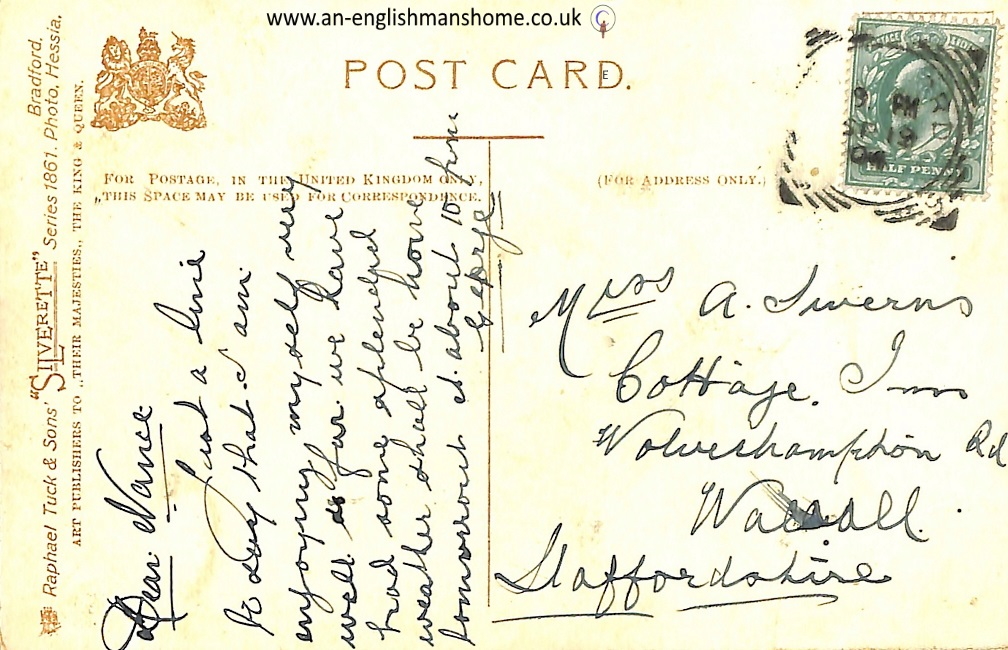 www.an-englishmanshome.co.uk
POST CARD.
E
Raphael Tuck & Sons' "SILVERETTE" Series 1861. Photo, Hessia, Bradford.
ART PUBLISHERS TO „THEIR MAJESTIES„ THE KING & QUEEN.
FOR POSTAGE, IN THE UNITED KINGDOM ONLY,
„THIS SPACE MAY BE USED FOR CORRESPONDENCE.
(FOR ADDRESS ONLY.)
POSTAGE
HALF PENNY
9 PM
SP 19
04
Dear Nance
Just a line
to say that I am
enjoying myself very
well so far. we have
had some splended
weather shall be home
tomorrow at about 10 pm
George
Miss A. Swerns
Cottage. Inn
Wolverhampton Rd
Walsall.
Staffordshire